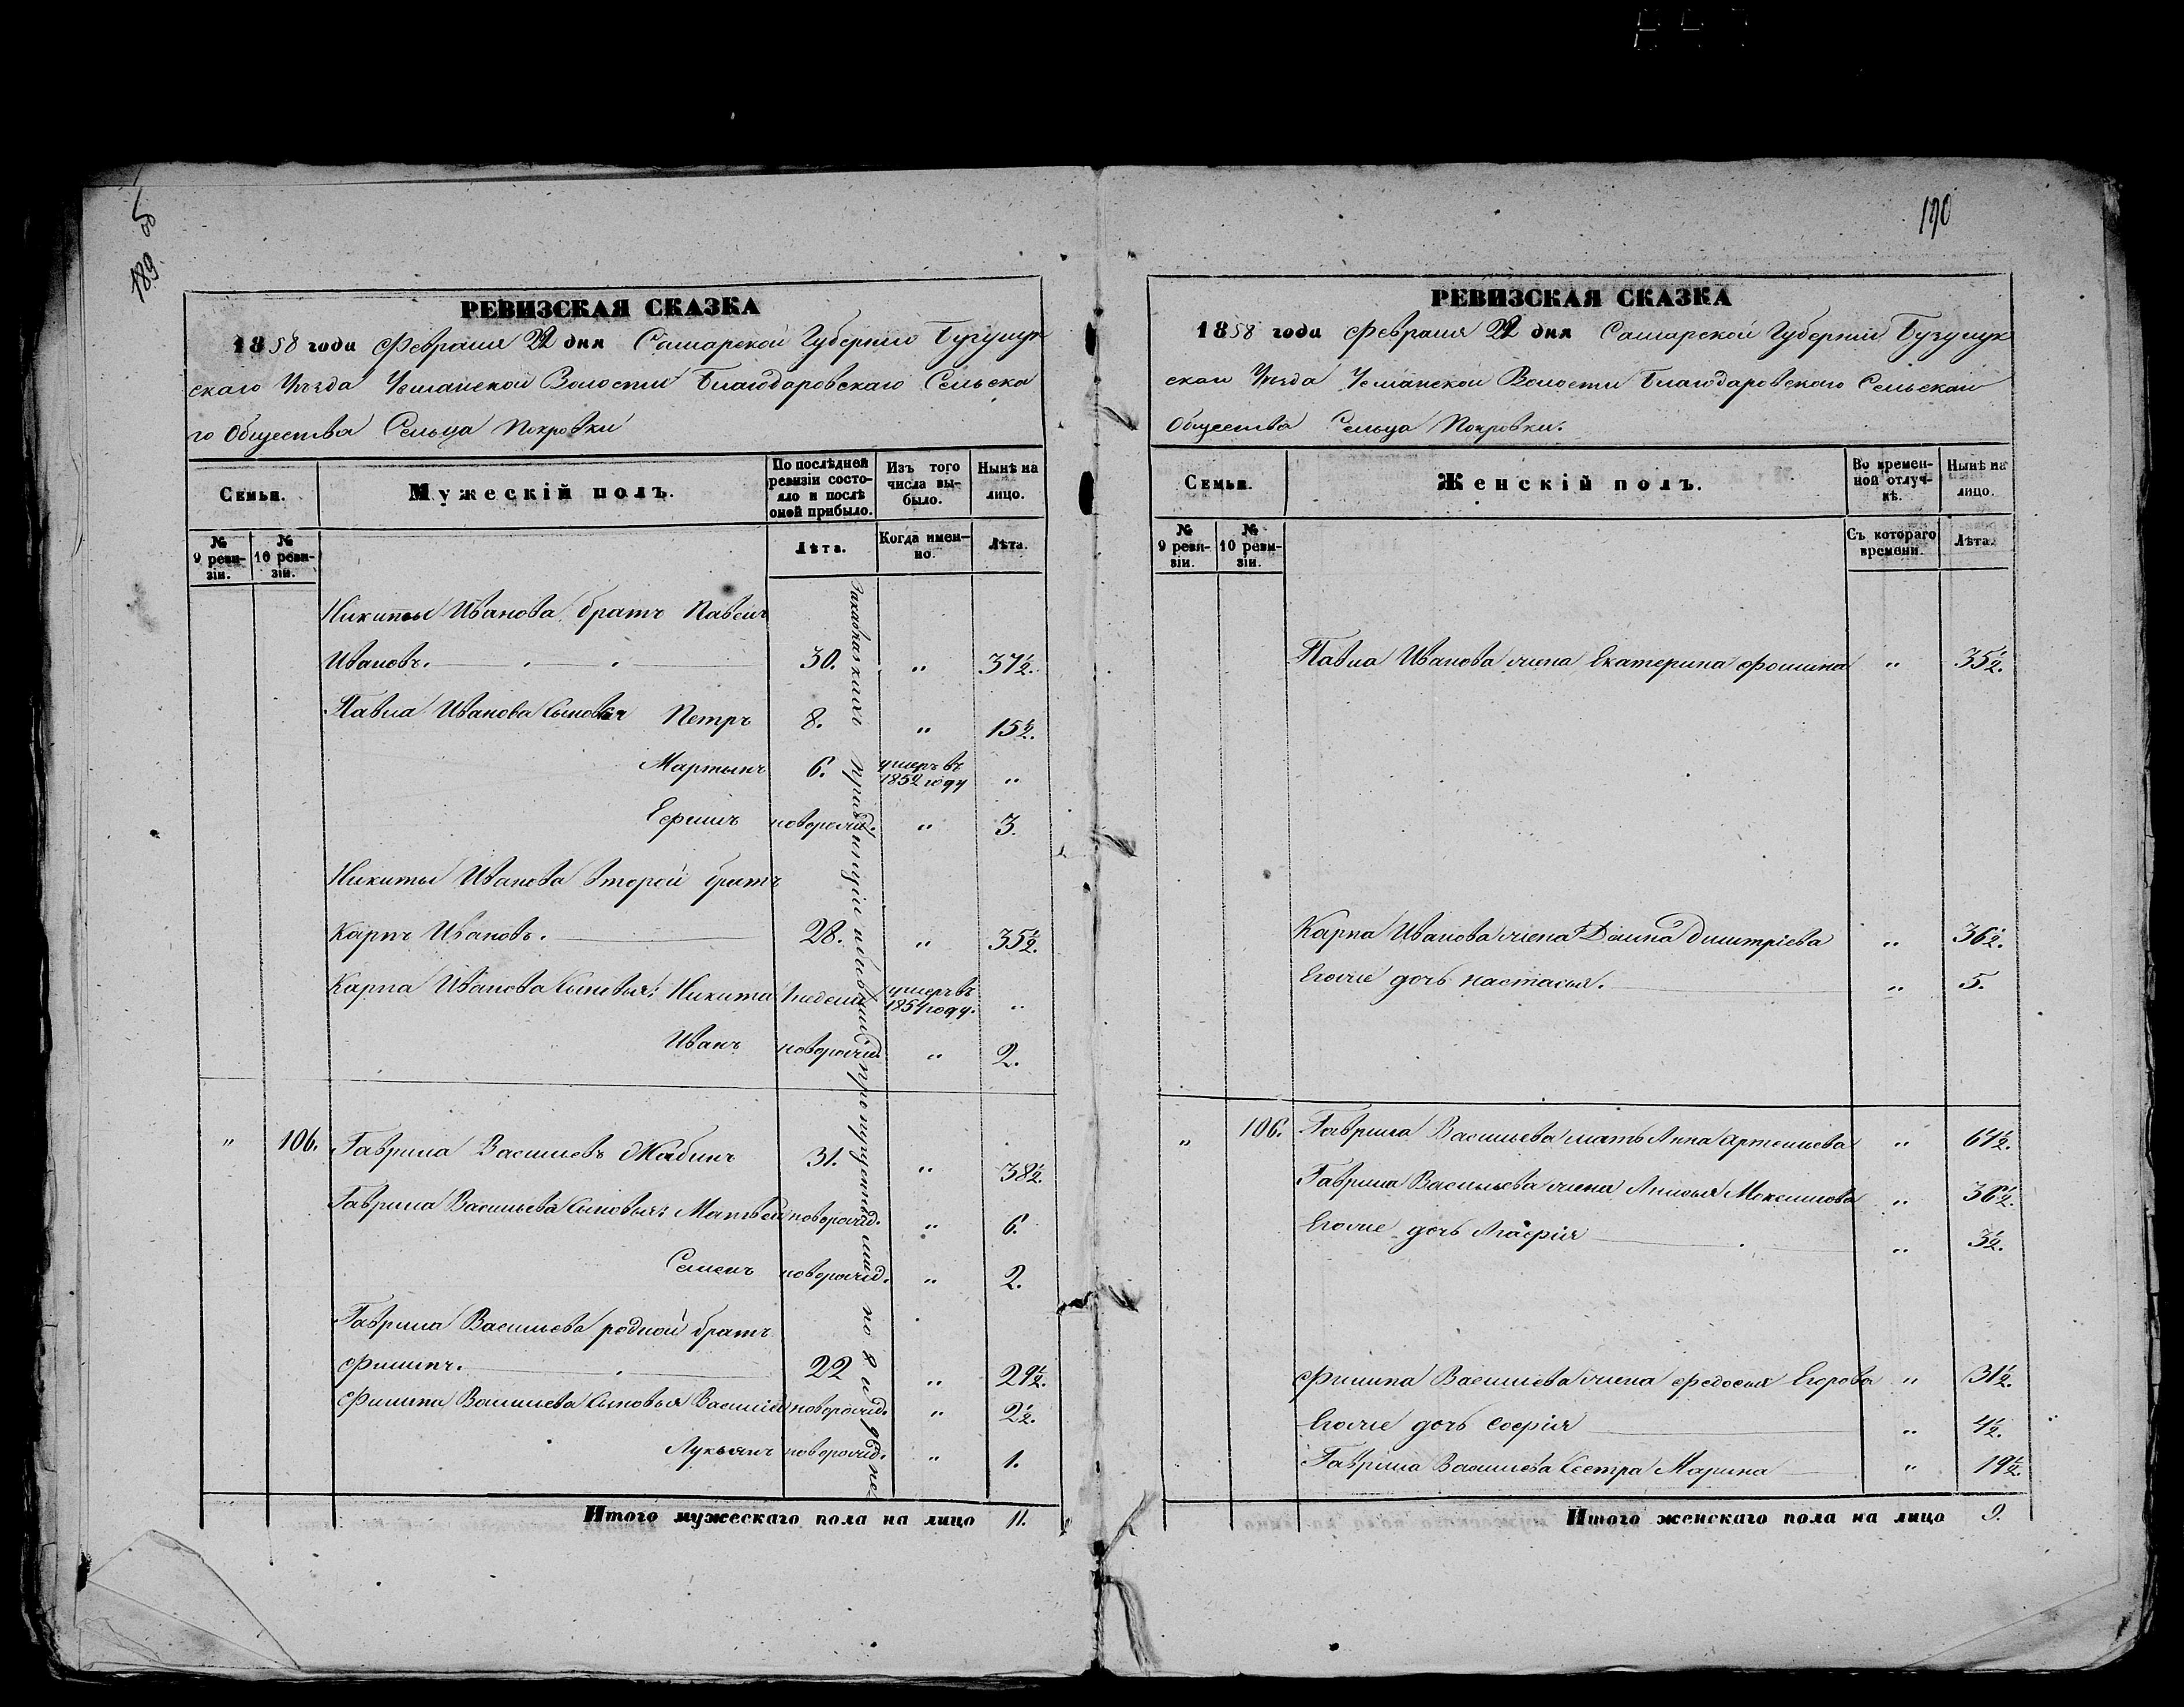 189
190
РЕВИЗСКАЯ СКАЗКА
1858 года Февраля 22 дня Самарской Губернiи Бузулук
скаго Уѣзда Усманской Волости Благодаровскаго Сельска
го Общества Сельца Покровки
Семьи.
Мужескiй полъ.
По послѣдней ревизiи состояло и послѣ оной прибыло.
Изъ того числа выбыло.
Нынѣ на лицо.
№ 9 ревизiи.
№ 10 ревизiи.
Лѣта.
Когда именно.
Лѣта.
Никиты Иванова братъ Павелъ
Ивановъ. 30. " 37½.
Павла Иванова Сыновья Петръ 8. " 15½.
Мартынъ 6. умеръ въ 1852 году "
новорожд. " 3.
Никиты Иванова второй братъ
Карпъ Ивановъ. 28. " 35½.
Карпа Иванова Сыновья: Никита 1 недели умеръ въ 1854 году. "
Иванъ новорожд. " 2.
" 106. Гаврила Васильевъ Жабинъ 31. " 38½.
Гаврила Васильева Сыновья: Матвей новорожд. " 6.
Семенъ новорожд. " 2.
Гаврила Васильева родной братъ
Филипъ. 22 " 29½.
Филипа Васильева Сыновья Василiй новорожд. " 2½.
Лукьянъ новорожд. " 1.
Итого мужескаго пола на лицо 11.
РЕВИЗСКАЯ СКАЗКА
1858 года Февраля 22 дня Самарской Губернiи Бузулук
скаго Уѣзда Усманской Волости Благодаровскаго Сельскаго
Общества Сельца Покровки.
Семьи.
Женскiй полъ.
Во временной отлучкѣ.
Нынѣ на лицо.
№ 9 ревизiи.
№ 10 ревизiи.
Съ котораго времени.
Лѣта.
Павла Иванова жена Екатерина Фомина " 35½.
Карпа Иванова жена Домна Дмитрiева " 36½.
Егоже дочь Настасья. " 5.
" 106. Гаврила Васильева мать Анна Артемиева " 61½.
Гаврила Васильева жена Анисья Максимова " 36½.
Егоже дочь Марiя " 3½.
Филипа Васильева жена Федосья Егорова " 31½.
Егоже дочь Софiя " 4½.
Гаврила Васильева Сестра Марина " 19½.
Итого женскаго пола на лицо 9.